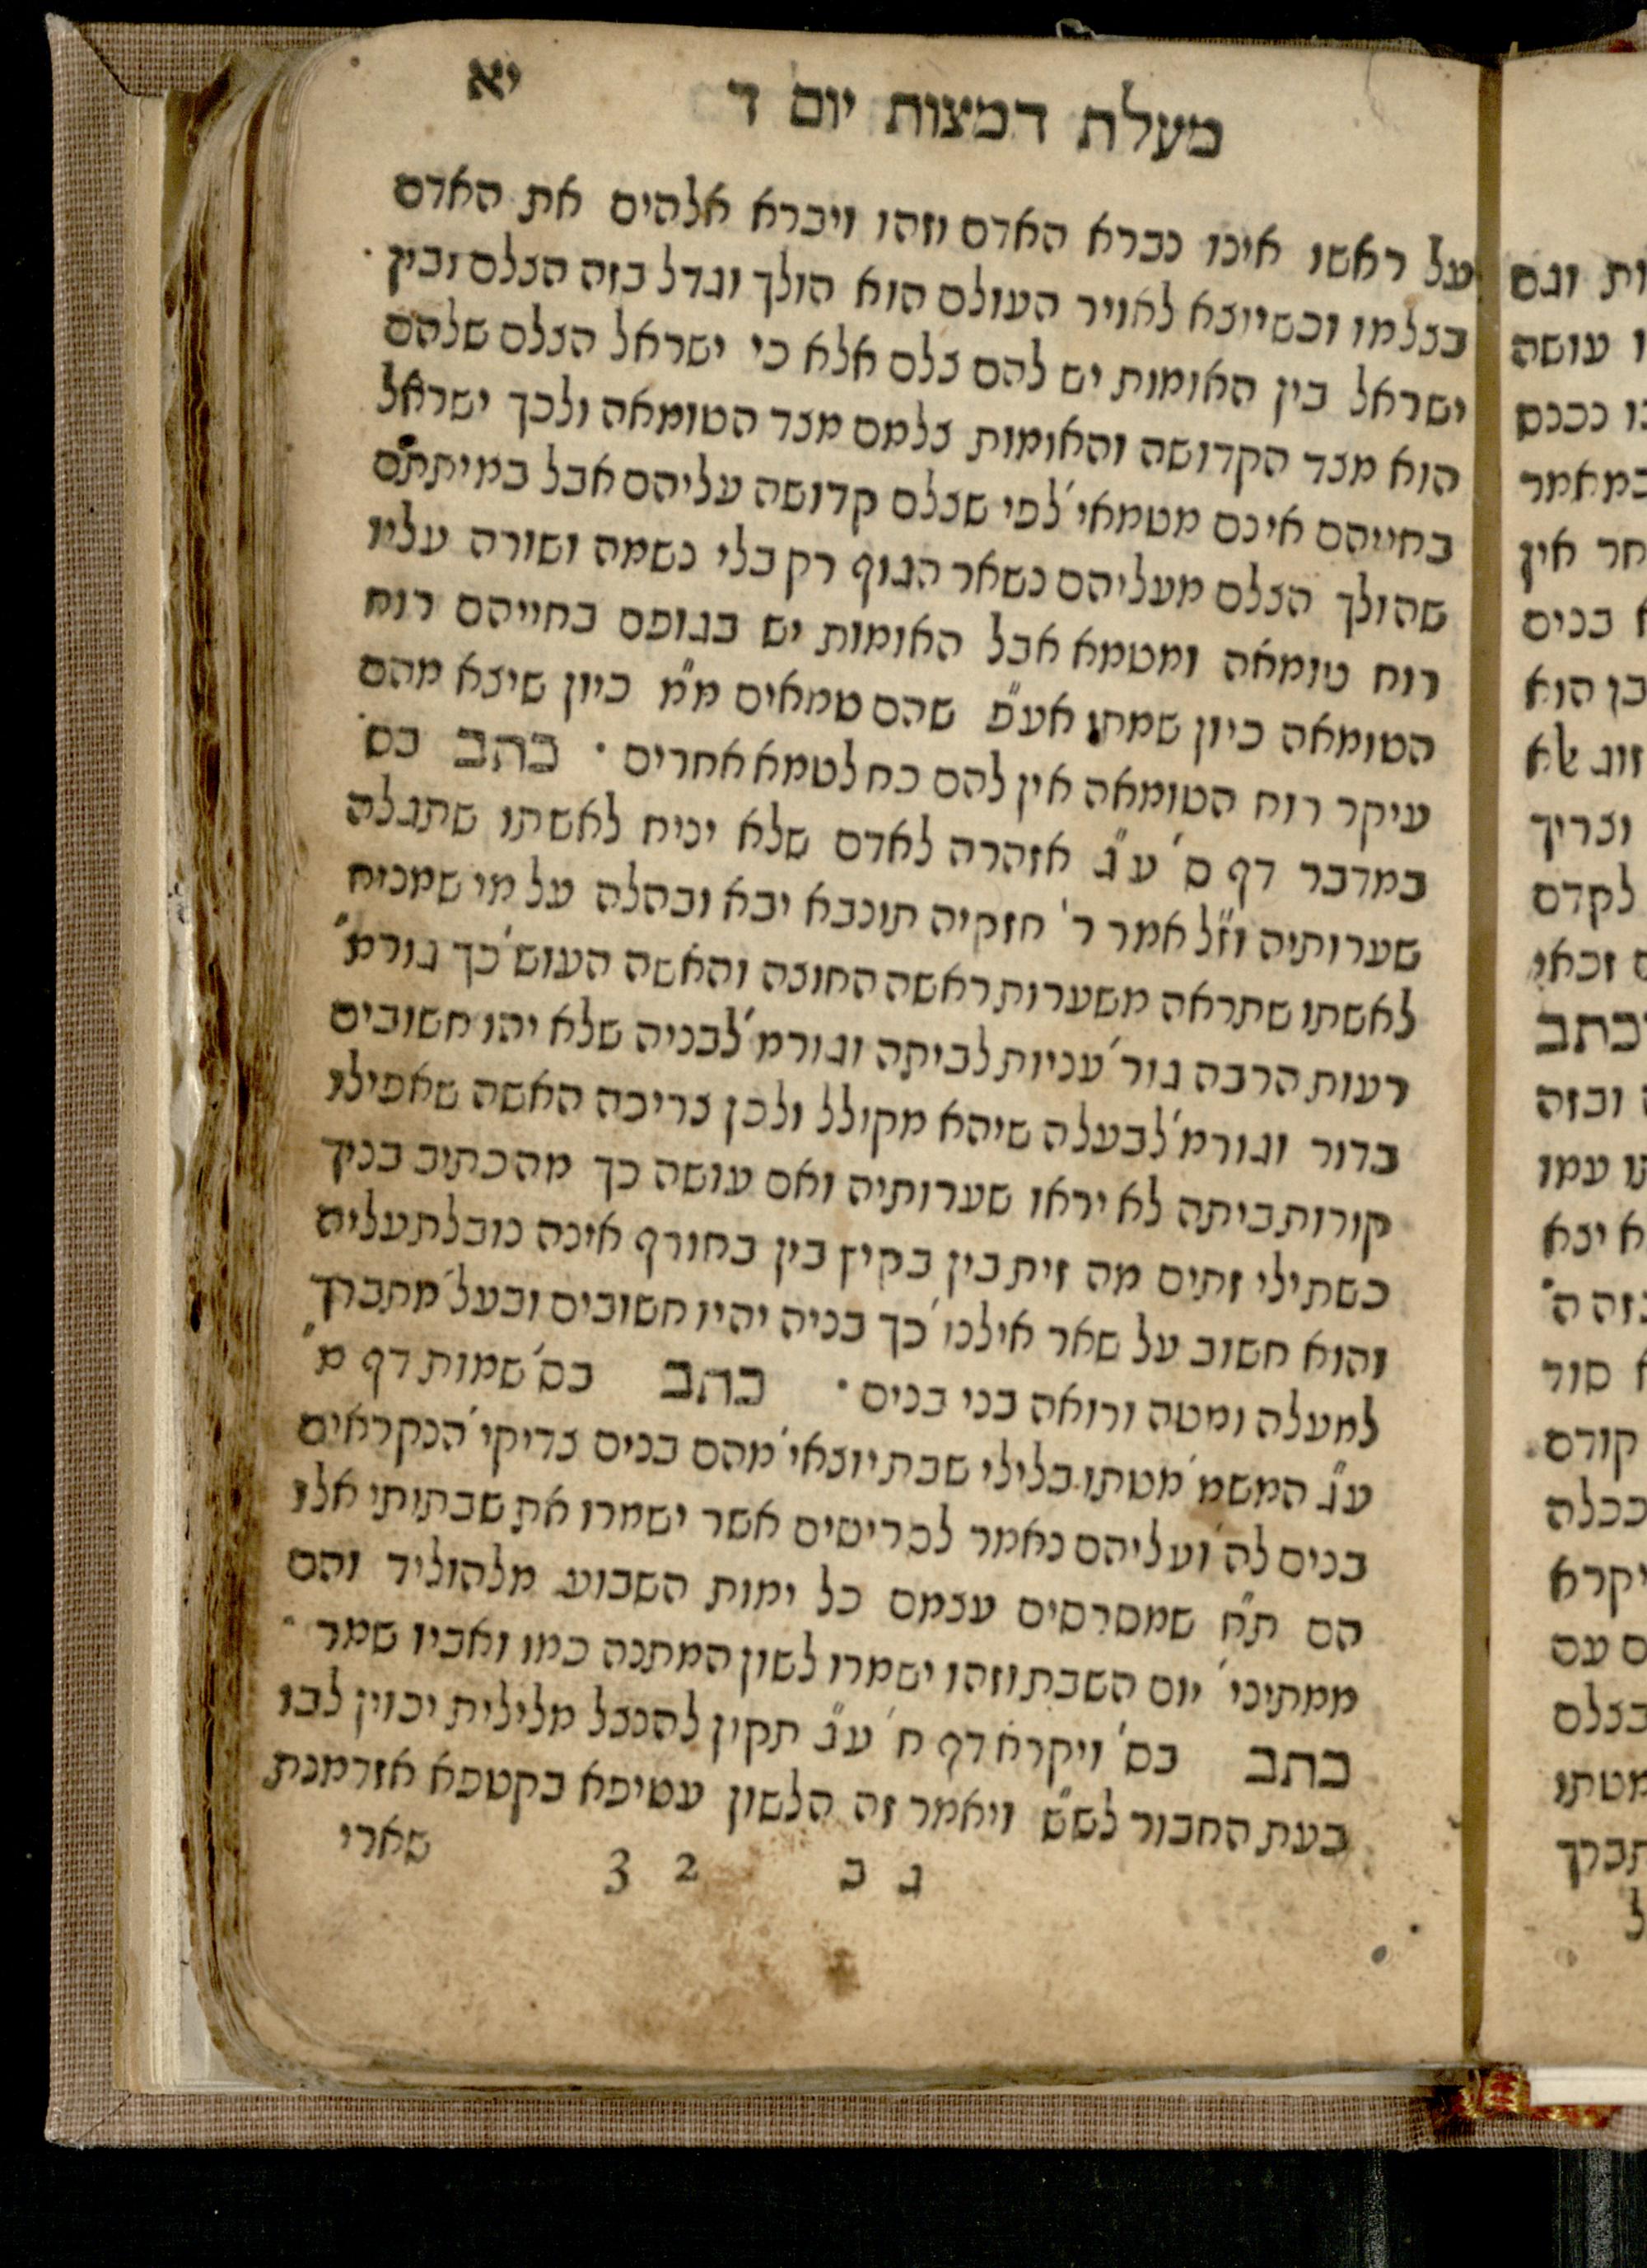 מעלת המצות יום ד יא
על ראשו אינו נברא האדם וזהו ויברא אלהים את האדם
בצלמו וכשיוצא לאויר העולם הוא הולך וגדל בזה הצלם ובין
ישראל בין האומות יש להם צלם אלא כי ישראל הצלם שלהם
הוא מצד הקדושה והאומות צלמם מצד הטומאה ולכך ישראל
בחייהם אינם מטמאי' לפי שצלם קדושה עליהם אבל במיתתם
שהולך הצלם מעליהם נשאר הגוף ריק בלי נשמה ושורה עליו
רוח טומאה ומטמא אבל האומות יש בגופם בחייהם רוח
הטומאה כיון שמתו אע"פ שהם טמאים מ"מ כיון שיצא מהם
עיקר רוח הטומאה אין להם כח לטמא אחרים · כתב בס'
במדבר דף ס' ע"ג אזהרה לאדם שלא יניח לאשתו שתגלה
שערותיה וז"ל אמר ר' חזקיה תונבא יבא ובהלה על מי שמניח
לאשתו שתראה משערות ראשה החוצה והאשה העוש' כך גורמ"
רעות הרבה גור' עניות לביתה וגורמ' לבניה שלא יהו חשובים
בדור וגורמ' לבעלה שיהא מקולל ולכן צריכה האשה שאפילו
קורות ביתה לא יראו שערותיה ואם עושה כך מה כתיב בניך
כשתילי זתים מה זית בין בקיץ בין בחורף אינה נובלת עליה
והוא חשוב על שאר אילנו' כך בניה יהיו חשובים ובעל' מתברך
למעלה ומטה ורואה בני בנים · כתב בס' שמות דף מ"
ע"ג המשמ' מטתו בלילי שבת יוצאי' מהם בנים צדיקי' הנקראים
בנים לה' ועליהם נאמר לסריסים אשר ישמרו את שבתותי אלו
הם ת"ח שמסרסים עצמם כל ימות השבוע מלהוליד והם
ממתיני' יום השבת וזהו ישמרו לשון המתנה כמו ואביו שמר ·
כתב בס' ויקרא דף ח' ע"ג תקון להנצל מלילית יכוין לבו
בעת החבור לש"ש ויאמר זה הלשון עטיפא בקטפא אזדמנת
ג ב 2 3 שארי
ות וגם
ו עושה
במאמר
חד אין
בנים
בן הוא
זוג שלא
וצריך
לקדם
זכאי
כתב
ובזה
עמו
יצא
בזה ה'
סוד
קודם
בכלה
יקרא
ם עם
בצלם
מטתו
תברך
ל